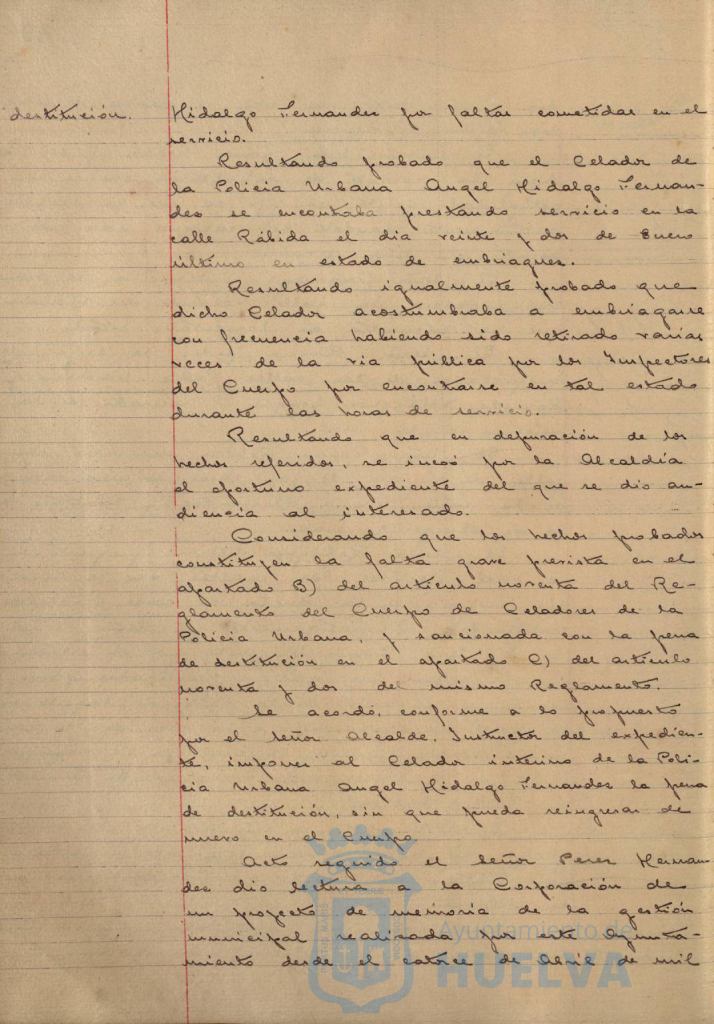 destitución.
Hidalgo Fernandez por faltas cometidas en el
servicio.
Resultando probado que el Celador de
la Policia Urbana Angel Hidalgo Fernan-
dez se encontraba prestando servicio en la
calle Rábida el dia veinte y dos de Enero
último en estado de embriaguez.
Resultando igualmente probado que
dicho Celador acostumbraba a embriagarse
con frecuencia habiendo sido retirado varias
veces de la via pública por los Inspectores
del Cuerpo por encontrarse en tal estado
durante las horas de servicio.
Resultando que en depuración de los
hechos referidos, se incoó por la Alcaldía
el oportuno expediente del que se dio au-
diencia al interesado.
Considerando que los hechos probados
constituyen la falta grave prevista en el
apartado B) del artículo noventa del Re-
glamento del Cuerpo de Celadores de la
Policia Urbana, y sancionada con la pena
de destitución en el apartado C) del artículo
noventa y dos del mismo Reglamento.
Se acordó, conforme a lo propuesto
por el Señor Alcalde, Instructor del expedien-
te, imponer al Celador interino de la Poli-
cia Urbana Angel Hidalgo Fernandez la pena
de destitución, sin que pueda reingresar de
nuevo en el Cuerpo
Acto seguido el Señor Perez Hernan-
dez dio lectura a la Corporación de
un proyecto de memoria de la gestión
municipal realizada por este Ayunta-
miento desde el catorce de Abril de mil
Ayuntamiento de
HUELVA